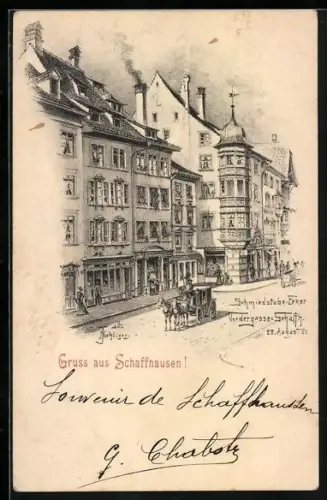 Schmiedstube-Erker
Vordergasse-Schaffh.
Gruss aus Schaffhausen!
Souvenir de Schaffhausen
G. Chabot